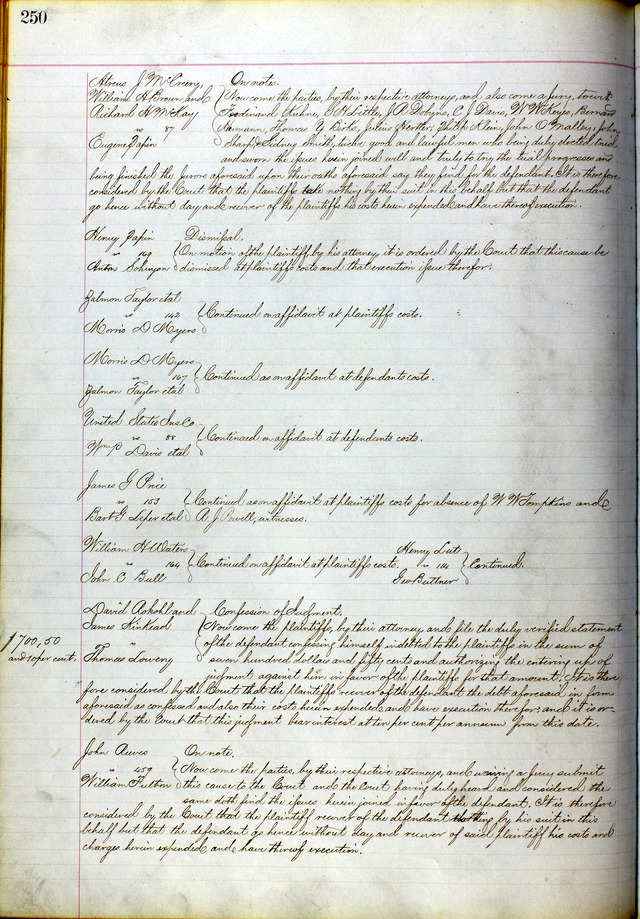 250
Atreus J McCreery, On note.
William H Brown and Now come the parties, by their respective attorneys, and also come a jury, towit:
Richard H McKay Ferdinand Kuhne, G H Little, J A Dobyns, C J Davis, W W Keyes, Bernard
vs 87 Hermann, Thomas G Birks, Julius Hertter, Phillip Klein, John O'Malley, John
Eugene Papin Sharp, & Sidney Smith, twelve good and lawful men who being duly elected tried
and sworn the issues herein joined well and truly to try the trial progresses and
being finished the jurors aforesaid upon their oaths aforesaid say they find for the defendant. It is therefore
considered by the Court that the plaintiffs take nothing by their suit in this behalf but that the defendant
go hence without day and recover of the plaintiffs his costs herein expended and have thereof execution.
Henry Papin Dismissal.
vs 149 On motion of the plaintiff, by his attorney it is ordered by the Court that this cause be
Anton dismissed at plaintiffs costs and that execution issue therefor.
Zalmon Taylor etal
vs 142 Continued on affidavit at plaintiffs costs.
Morris D Myers
Morris D Myers
vs 167 Continued as on affidavit at defendants costs.
Zalmon Taylor etal
United States Ins Co
vs 88 Continued on affidavit at defendants costs.
Wm P Davis etal
James G Price
vs 153 Continued as on affidavit at plaintiffs costs for absence of W W Tompkins and
Bart G etal A J Powell, witnesses.
William H Waters Henry Lut
vs 164 Continued on affidavit at plaintiffs costs. vs 184 Continued.
John C Bull Geo Buttner
David Aokohl and Confession of Judgment.
James Kinkead Now come the plaintiffs, by their attorney and file the duly verified statement
$700,50 vs of the defendant confessing himself indebted to the plaintiffs in the sum of
and 10 per cent. Thomas Lowery seven hundred dollars and fifty cents and authorizing the entering up of
judgment against him in favor of the plaintiffs for that amount. It is there
fore considered by the Court that the plaintiffs recover of the defendant the debt aforesaid in form
aforesaid as confessed and also their costs herein expended and have execution therefor; and it is or-
dered by the Court that this judgment bear interest at ten per cent per annum from this date.
John Reeves On note.
vs 459 Now come the parties, by their respective attorneys, and waiving a jury submit
William Fulton this cause to the Court and the Court having duly heard and considered the
same doth find the issues herein joined in favor of the defendant. It is therefore
considered by the Court that the plaintiff recover of the defendant nothing by his suit in this
behalf but that the defendant go hence without day and recover of said plaintiff his costs and
charges herein expended and have thereof execution.